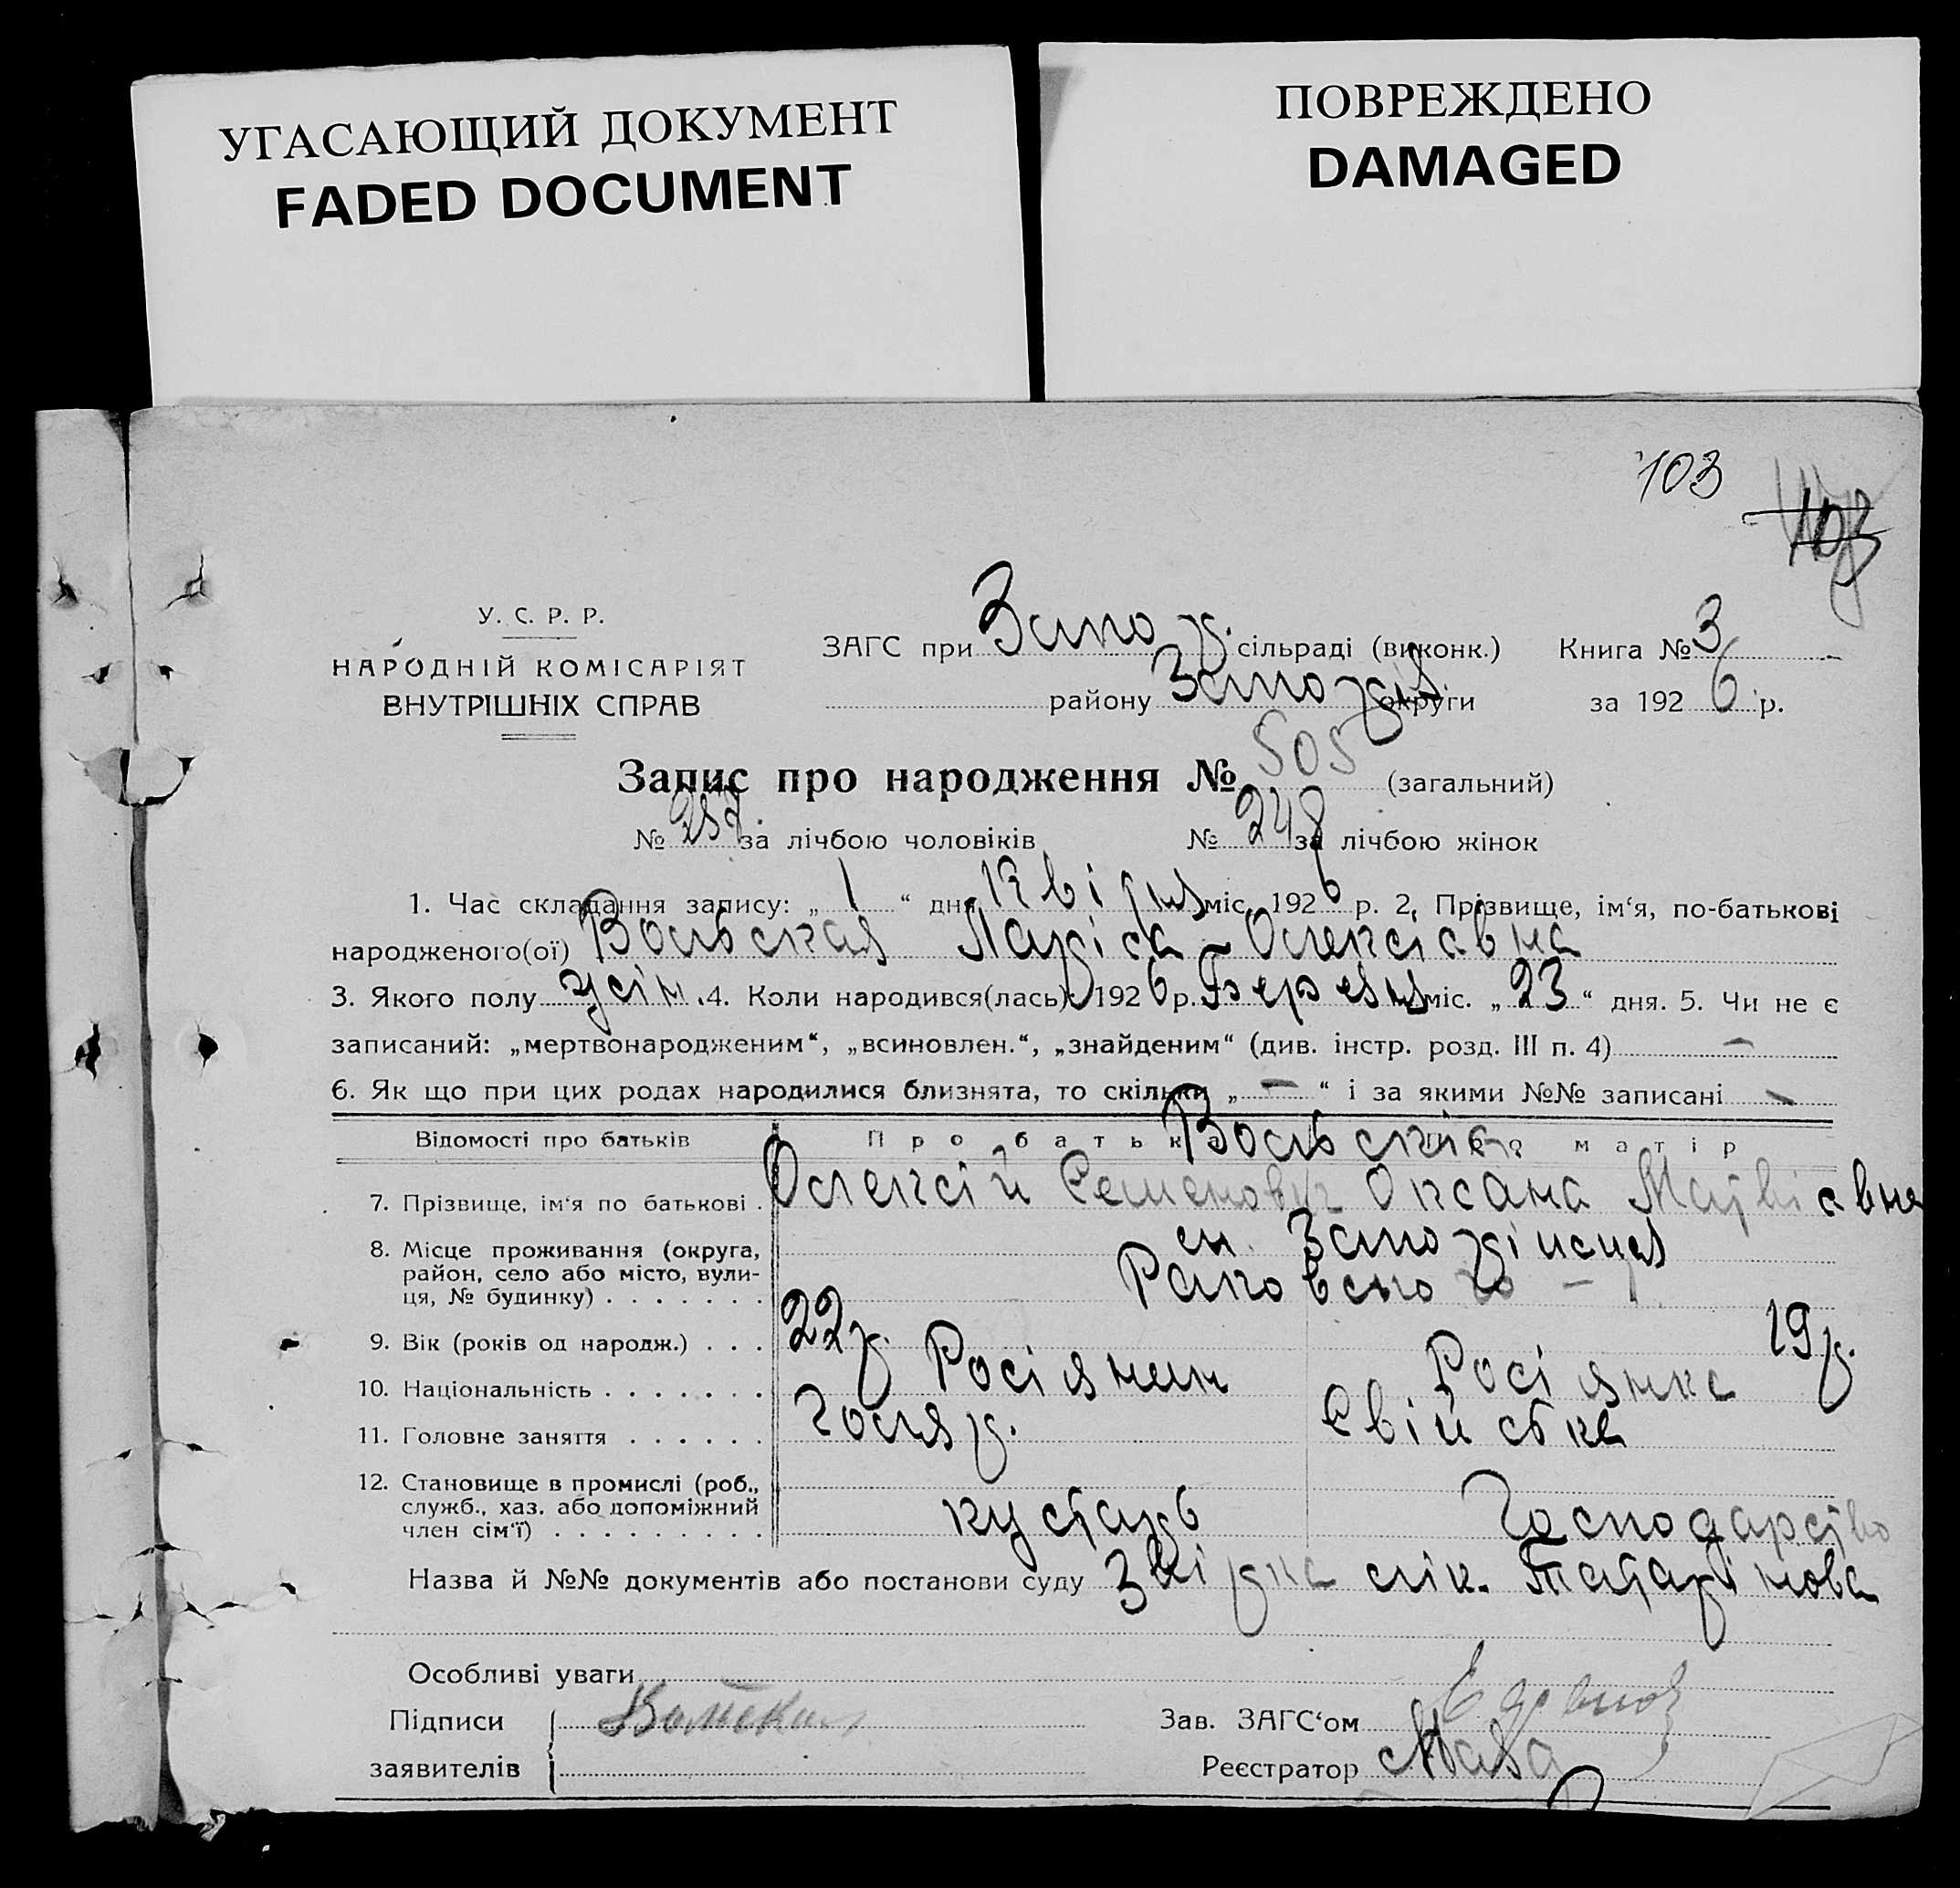 УГАСАЮЩИЙ ДОКУМЕНТ
FADED DOCUMENT
ПОВРЕЖДЕНО
DAMAGED
103
103
У. С. Р. Р.
НАРОДНІЙ КОМІСАРІЯТ
ВНУТРІШНІХ СПРАВ
ЗАГС при Запор. сільраді (виконк.) Книга № 3
району Запоріз. округи за 1926 р.
Запис про народження № 505 (загальний)
№ 257 за лічбою чоловіків № 248 за лічбою жінок
1. Час складання запису: „ 1 “ дня Квітня міс. 1926 р. 2. Прізвище, ім‘я, по-батькові
народженого(ої) Вольская Ларіса - Олексієвна
3. Якого полу жін. 4. Коли народився(лась) 1926 р. Березня міс. „ 23 “ дня. 5. Чи не є
записаний: „мертвонародженим“, „всиновлен.“, „знайденим“ (див. інстр. розд. III п. 4) —
6. Як що при цих родах народилися близнята, то скільки „ — “ і за якими №№ записані —
Відомості про батьків Про батька Вольскіє Про матір
7. Прізвище, ім‘я по батькові . Олексій Семенович Оксана Матвієвна
8. Місце проживання (округа, район, село або місто, вули-ця, № будинку) . . . . . . . ст. Запоріжжя
Раковського -
9. Вік (років од народж.) . . . 22 р. 19 р.
10. Національність . . . . . . . Росіянин Росіянка
11. Головне заняття . . . . . . Голяр. Свійська
12. Становище в промислі (роб., служб., хаз. або допоміжний член сім‘ї) . . . . . . . . . кустарь Господарство
Назва й №№ документів або постанови суду Звідка лік. Татарінова
Особливі уваги
Підписи Вольская Зав. ЗАГС‘ом
заявителів Реєстратор